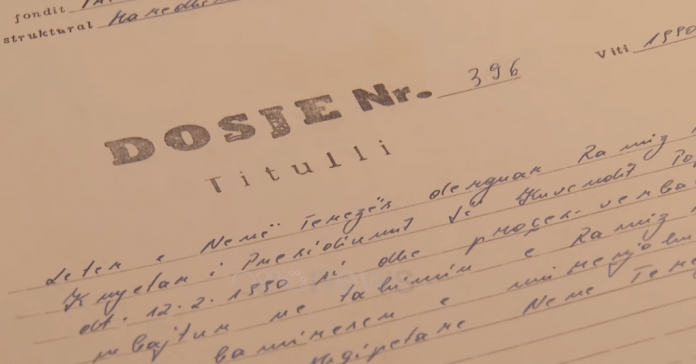 fondit
struktural
Viti 1990
DOSJE Nr. 396
Titulli
Letër e Nënë Terezës dërguar Ramiz
Kryetar i Presidiumit të Kuvendit Po
dt. 12.2.1990 si dhe proces-verba
mbajtur në takimin e Ramiz
bamirësen e
shqiptare Nënë Tere